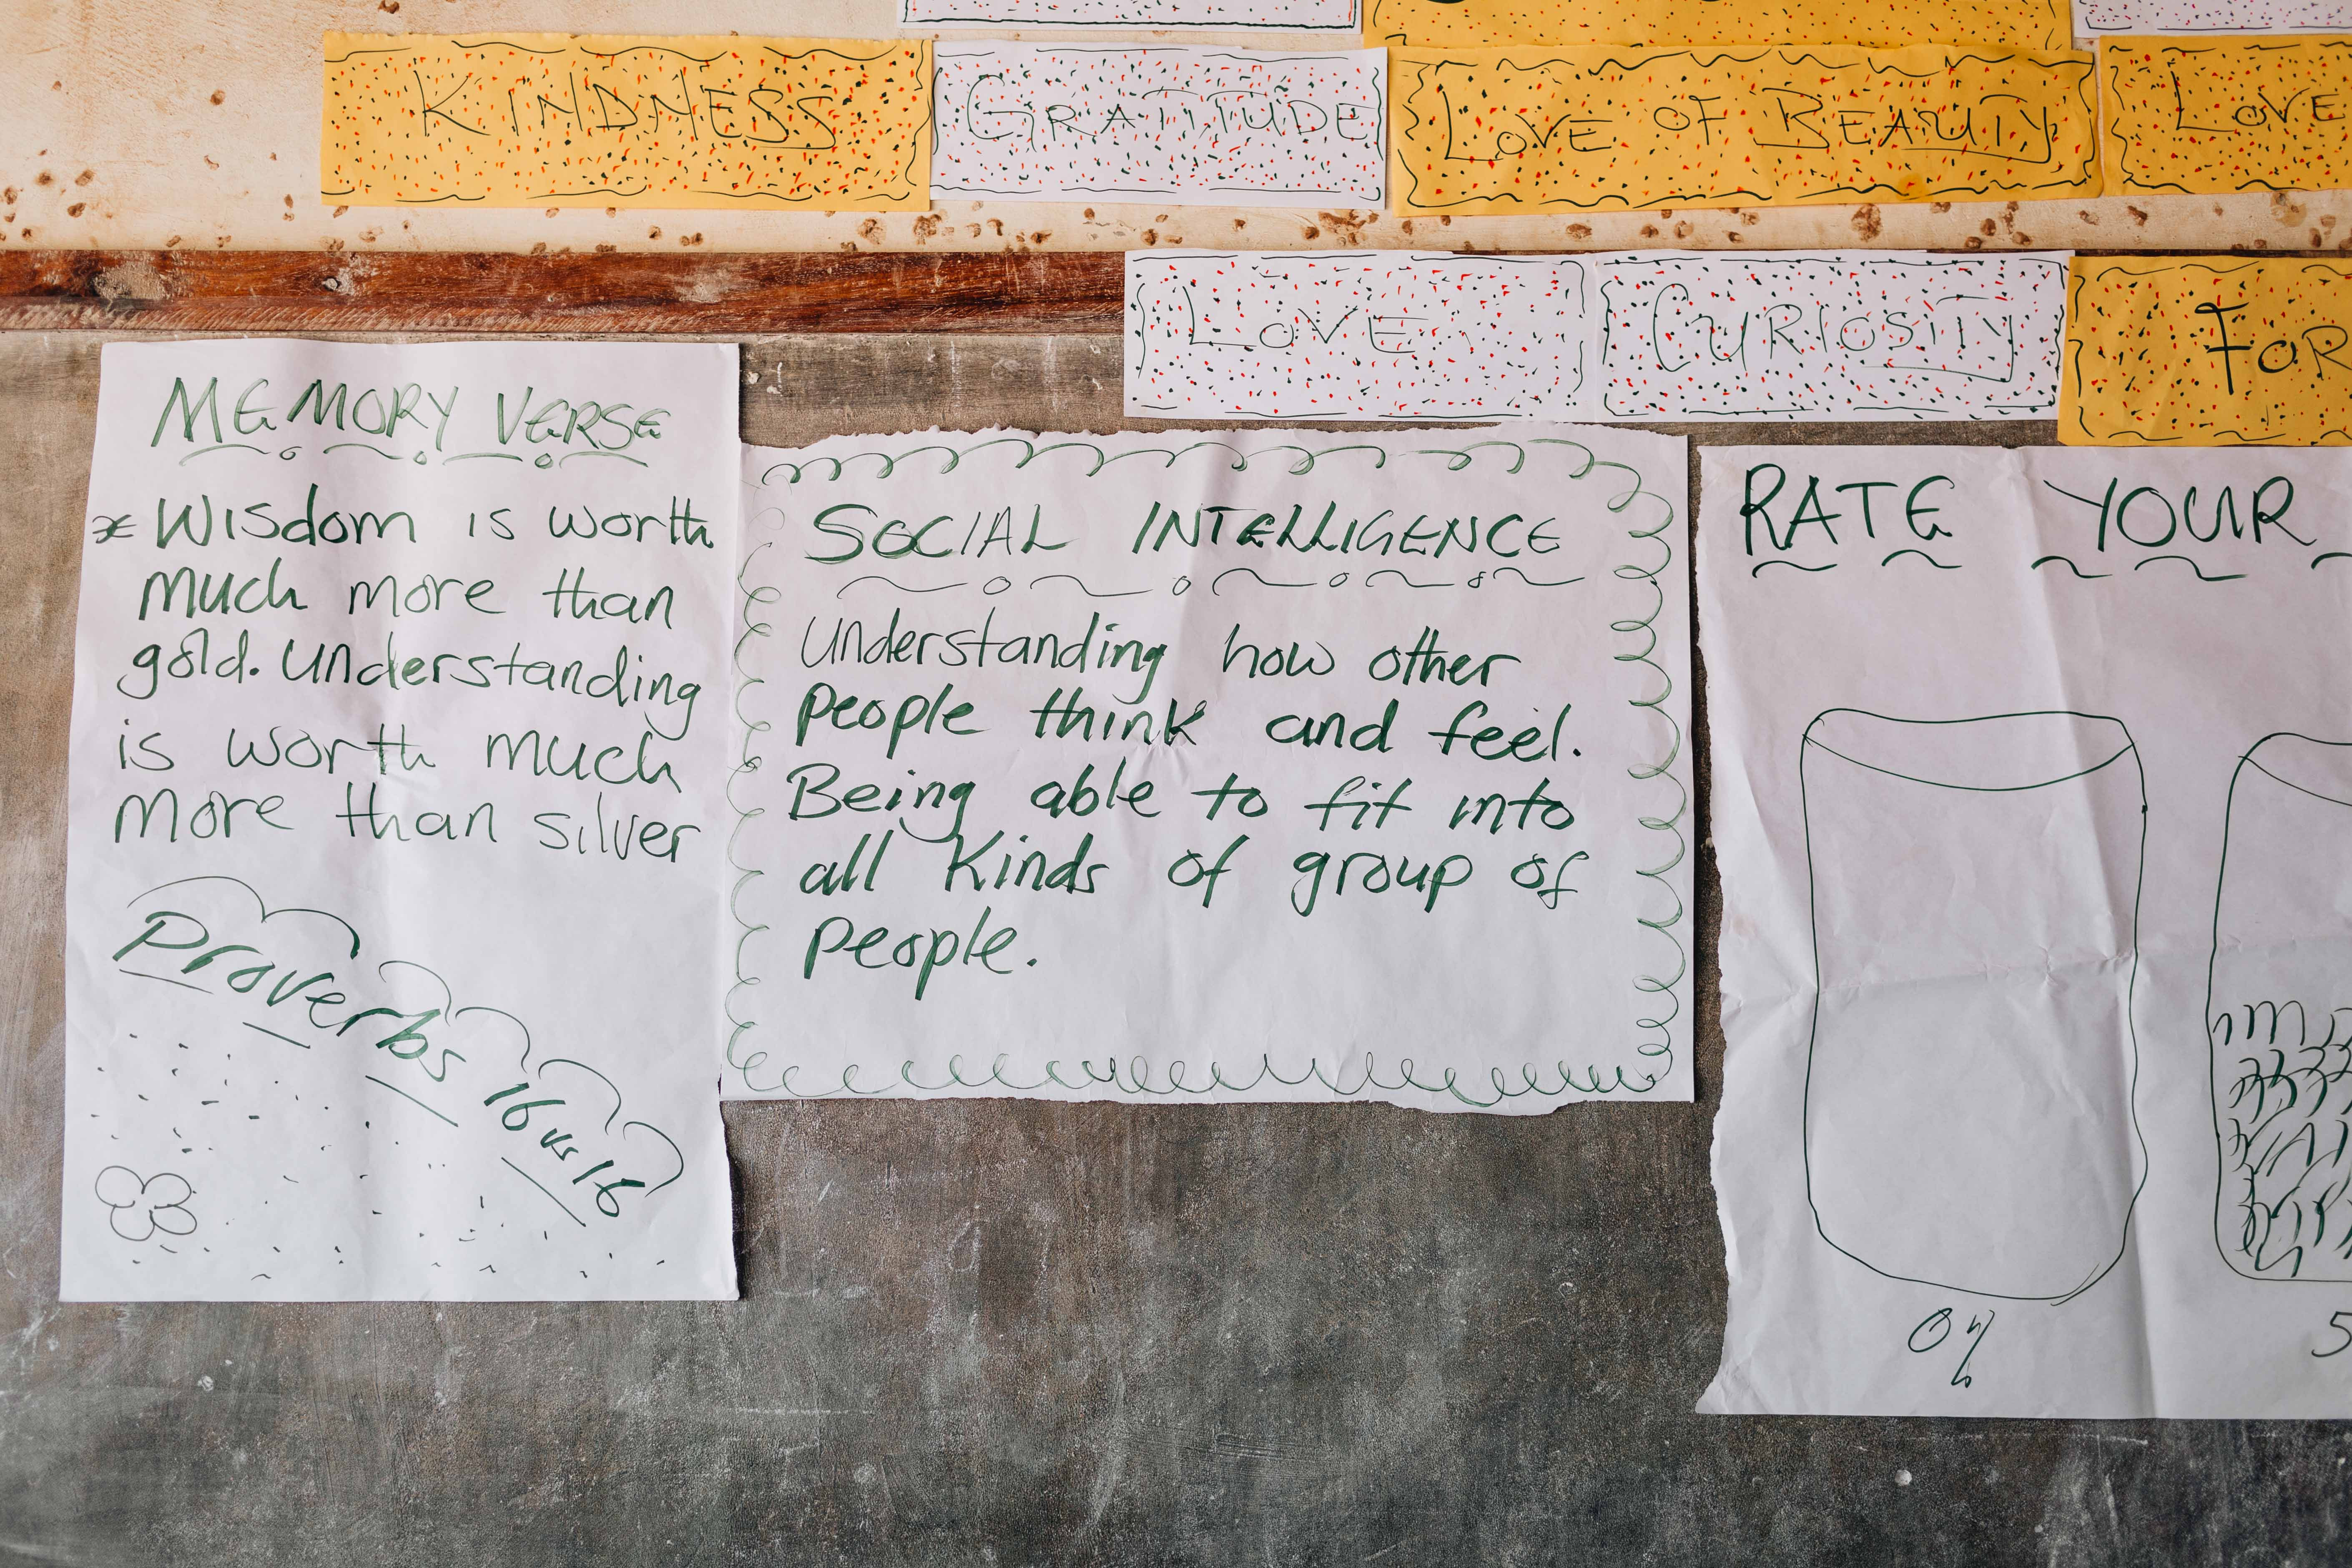 KINDNESS
GRATITUDE
LOVE OF BEAUTY
LOVE
LOVE
CURIOSITY
FOR
MEMORY VERSE
* Wisdom is worth
much more than
gold. Understanding
is worth much
more than silver
Proverbs 16 vs 16
SOCIAL INTELLIGENCE
Understanding how other
people think and feel.
Being able to fit into
all kinds of group of
people.
RATE YOUR
0%
5